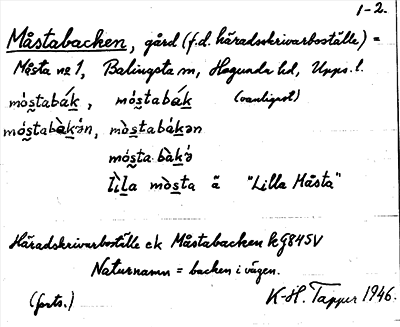 1-2.
Måstabacken, gård (f.d. häradsskrivarboställe) =
Måsta nr 1, Balingsta sn, Hagunda hd, Upps. l.
mós̱tabák̠, mòs̱tabák̠ (vanligast)
mós̱tabàk̠ən, mòs̱tabák̠ən
mós̱ta bàk̠ə
lìḻa mòs̱ta ä "Lilla Måsta"
Häradskrivarboställe ek Måstabacken kg845V
Naturnamn = backen i vägen.
(forts.) K-H. Tapper 1946.